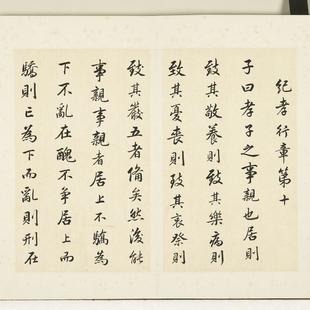 紀孝行章第十
子曰孝子之事親也居則
致其敬養則致其樂病則
致其憂喪則致其哀祭則
致其嚴五者備矣然後能
事親事親者居上不驕為
下不亂在醜不爭居上而
驕則亡為下而亂則刑在